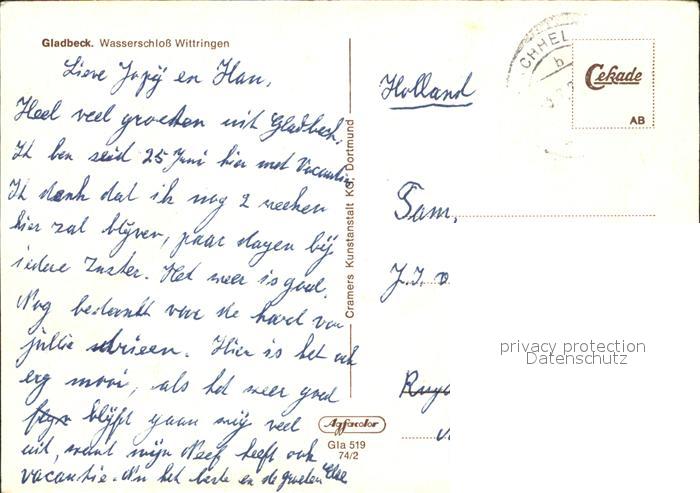 Gladbeck. Wasserschloß Wittringen
Lieve Jopij en Han,
Heel veel groeten uit Gladbeck.
Ik ben seid 25 Juni hier met Vacantie
Ik denk dat ik nog 2 weeken
hier zal blijven, paar dagen bij
iedere Zuster. Het weer is goed.
Nog bedankt voor de kaard van
jullie uit Hier is het ook
erg mooi, als het weer goed
blijft gaan wij veel
uit, want mijn Neef heeft ook
vacantie. N'n het beste en de groeten Else
Cramers Kunstanstalt KG, Dortmund
Agfacolor
Gla 519
74/2
CHHEL
b
Cekade
AB
Holland
Fam.
J.J.
privacy protection
Datenschutz